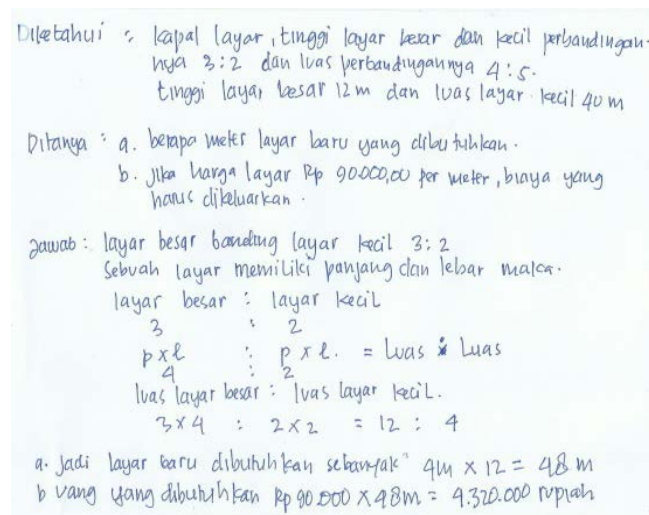 Diketahui : kapal layar, tinggi layar besar dan kecil perbandingan-
nya 3:2 dan luas perbandingannya 4:5.
tinggi layar besar 12 m dan luas layar kecil 40 m
Ditanya : a. berapa meter layar baru yang dibutuhkan.
b. jika harga layar Rp 90.000,00 per meter, biaya yang
harus dikeluarkan.
Jawab : layar besar banding layar kecil 3:2
Sebuah layar memiliki panjang dan lebar maka.
layar besar : layar kecil
3 : 2
p x l : p x l. = Luas : Luas
4 : 2
luas layar besar : luas layar kecil.
3 x 4 : 2 x 2 = 12 : 4
a. Jadi layar baru dibutuhkan sebanyak" 4m x 12 = 48 m
b uang yang dibutuhkan Rp 90.000 x 48m = 4.320.000 rupiah